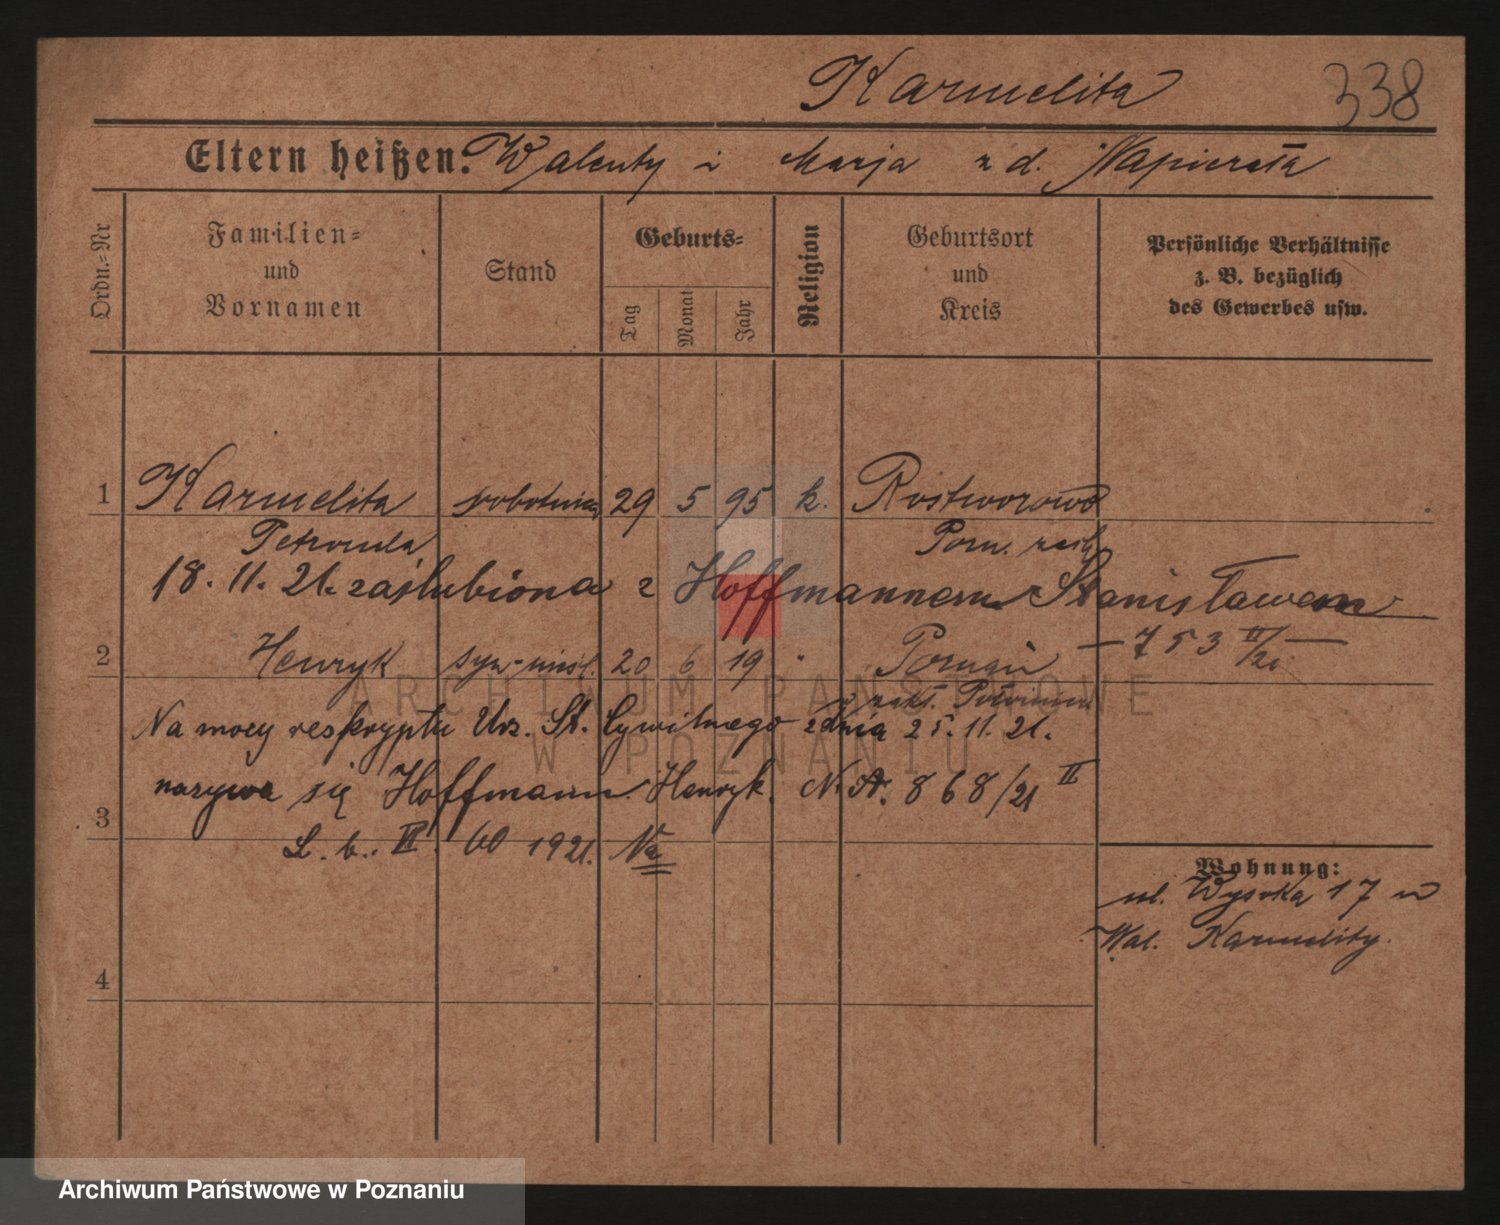 Karmelita 338
Eltern heißen: Walenty i Marja z d. Napierała
Ordn.=Nr
Familien=
und
Vornamen
Stand
Geburts=
Tag
Monat
Jahr
Religion
Geburtsort
und
Kreis
Persönliche Verhältnisse
z. B. bezüglich
des Gewerbes usw.
1 Karmelita robotnica 29 5 95 k. Rostworowo
Petronela Pozn. zach
18. 11. 21. zaślubiona z Hoffmannem Stanisławem
— 753 II/21 —
2 Henryk syn-nieśl. 20 6 19 " Poznań
w zakł. Położniczym
Na mocy reskryptu Urz. St. Cywilnego z dnia 25. 11. 21.
nazywa się Hoffmann Henryk. N. A. 868/21 II
3
L. b. III. 60 1921. Na
Wohnung:
ul. Wysoka 17 u
Wal. Karmelity.
4
ARCHIWUM PAŃSTWOWE
W POZNANIU
Archiwum Państwowe w Poznaniu